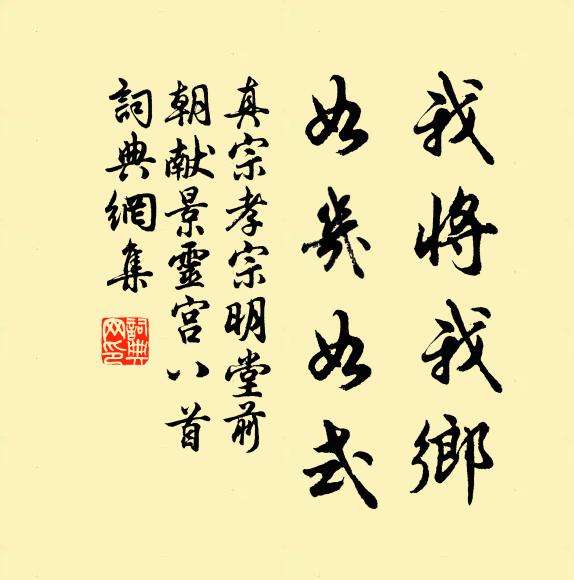 我將我鄉
如幾如式
真宗孝宗明堂前
朝献景靈宮八首
詞典網集
詞典網印